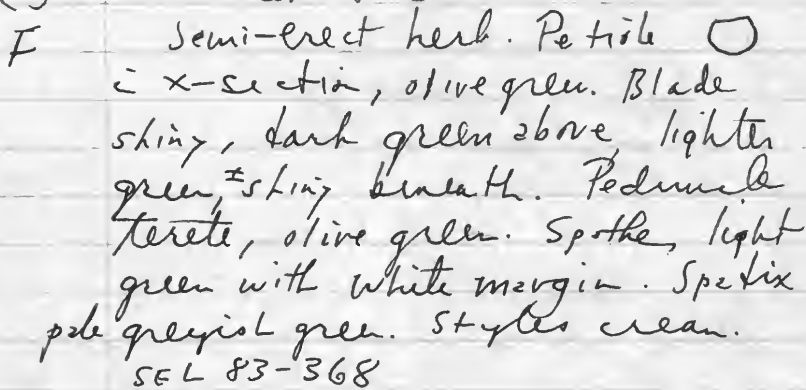 F Semi-erect herb. Petiole
in x-section, olive green. Blade
shiny, dark green above, lighter
green, ± shiny beneath. Peduncle
terete, olive green. Spathe, light
green with white margin. Spadix
pale greyish green. Styles cream.
SEL 83-368